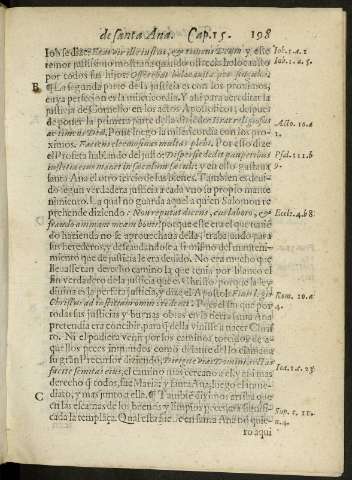 de santa Ana. Cap. 15. 198
Iob se dize: Erat vir ille iustus, & timens Deum y este
temor justissimo mostraua quando ofrecia holocaustos
por todos sus hijos: Offerebat holocausta pro singulis.
B La segunda parte de la justicia es con los proximos,
cuya perfecion es la misericordia. Y assi para acreditar la
justicia de Cornelio en los actos Apostolicos, despues
de poner la primera parte della diziendo: Erat religiosus
ac timens Deũ. Pone luego la misericordia con los pro-
ximos. Faciens eleemosynas multas plebi. Por esso dize
el Profeta hablando del justo: Dispersit dedit pauperibus
iustitia eius manet in saeculum saeculi: y en esto gastaua
santa Ana el otro tercio de sus bienes. Tambien es deui-
do segun verdadera justicia a cada vno su propio mante
nimiento. La qual no guarda aquel a quien Salomon re
prehende diziendo: Non reputat dicens, cui laboro, &
fraudo animam meam bonis? porque este era el que tenie
do hazienda no se aprouechaua della: trabajando para
sus herederos, y defraudandole a si mismo del manteni-
miento que de justicia le era deuido. No era mucho que
lleuasse tan derecho camino la que tenia por blanco el
fin verdadero de la justicia que es Christo: porque la ley
diuina es la perfeta justicia, y dize el Apostol: Finis legis
Christus ad iustitiam omni credenti. Pues el fin que por
todas sus justicias y buenas obras en la tierra santa Ana
pretendia era concibir para q̃ della viniesse a nacer Chris
to. Ni el podia venir por los caminos torcidos de a-
quellos pecc
su gran Precursor diziendo: Dirigite viam Domini, rectas
facite semitas eius, el camino mas cercano a el y el mas
derecho q̃ todos, fue Maria: y santa Ana, luego el inme-
C diato, y mas junto a ella. Tambiẽ diximos arriba que
en las escamas de los buenos y limpios peces està
cada la templãça. Qual esta
ro aqui
Iob. 1. a. 1
Iob. 1. a. 5.
Acto. 10. a
1.
Psal. 111. b
9.
Eccli. 4. b 8
Rom. 10. a
4.
Ioã. 1. d. 23
Sup. c. 11.
n. 4.